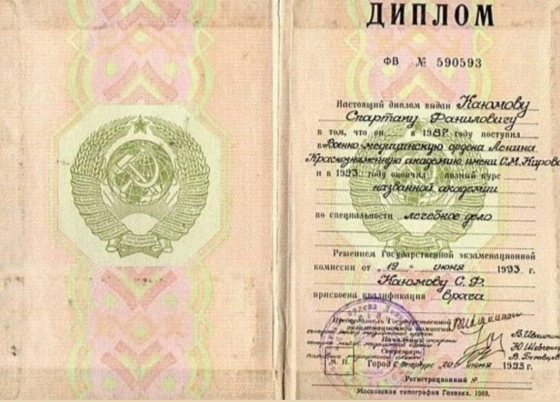 ДИПЛОМ
ФВ № 590593
Настоящий диплом выдан Каюмову
Спартаку Фаниловичу
в том, что он в году поступил
в Военно-медицинскую ордена Ленина
Краснознаменную академию имени С.М. Кирова
и в 1993 году окончил полный курс
названной академии
по специальности лечебное дело
Решением Государственной экзаменационной
комиссии от „19“ июня 1993 г.
Каюмову С.Ф.
присвоена квалификация врача
Председатель Государственной
экзаменационной комиссии
Начальник академии
Ю. Шевченко
Секретарь
М. П.
Город С-Петербург 20 июня 1993 г.
Регистрационный №
Московская типография Гознака.